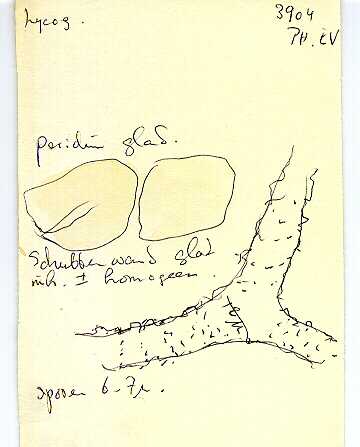 Lycog.
3904
PH. CV
peridin glad.
Schubben wand glad
inh. ± homogeen.
sporen 6-7µ.